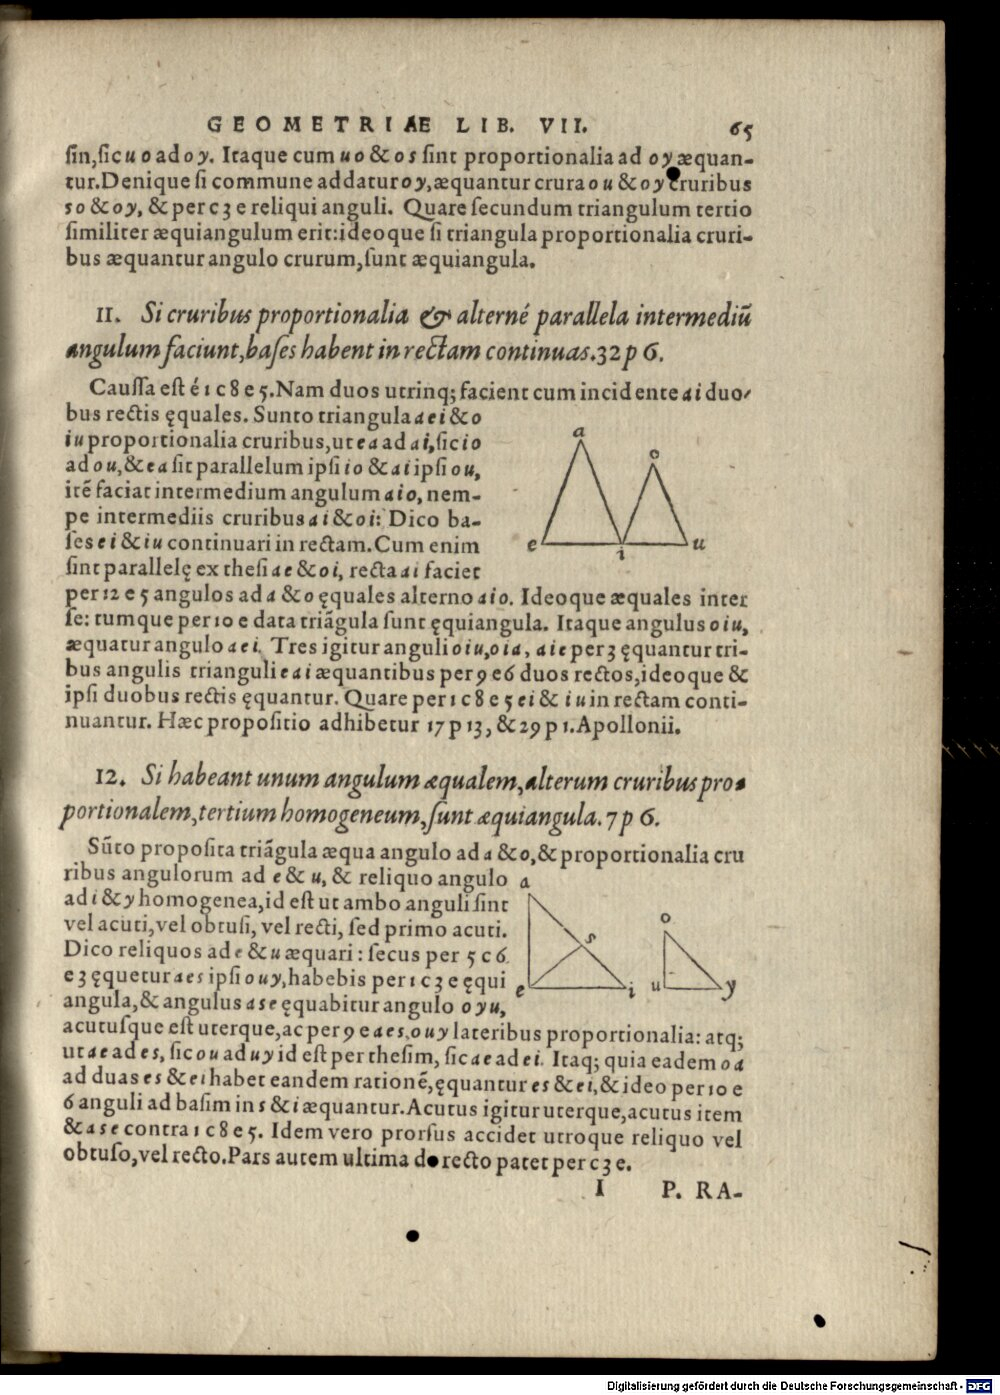 GEOMETRIÆ LIB. VII. 65
ſin,ſic uo ad oy. Itaque cum uo & os ſint proportionalia ad oy æquan-
tur. Denique ſi commune addatur oy, æquantur crura ou & oy cruribus
so & oy, & per c 3 e reliqui anguli. Quare ſecundum triangulum tertio
ſimiliter æquiangulum erit: ideoque ſi triangula proportionalia cruri-
bus æquantur angulo crurum, ſunt æquiangula.
11. Si cruribus proportionalia & alterné parallela intermediū
angulum faciunt, baſes habent in rectam continuas. 32 p 6.
Cauſſa eſt é 1 c 8 e 5. Nam duos utrinq; facient cum incidente ai duo-
bus rectis ęquales. Sunto triangula aei & o
iu proportionalia cruribus, ut ea ad ai, ſic io
ad ou, & ea ſit parallelum ipſi io & ai ipſi ou,
itē faciat intermedium angulum aio, nem-
pe intermediis cruribus ai & oi: Dico ba-
ſes ei & iu continuari in rectam. Cum enim
ſint parallelę ex theſi ae & oi, recta ai faciet
a
o
e
i
u
per 12 e 5 angulos ad a & o ęquales alterno aio. Ideoque æquales inter
ſe: tumque per 10 e data triāgula ſunt ęquiangula. Itaque angulus oiu,
æquatur angulo aei. Tres igitur anguli oiu, oia, aie per 3 ęquantur tri-
bus angulis trianguli eai æquantibus per 9 e 6 duos rectos, ideoque &
ipſi duobus rectis ęquantur. Quare per 1 c 8 e 5 ei & iu in rectam conti-
nuantur. Hæc propoſitio adhibetur 17 p 13, & 29 p 1. Apollonii.
12. Si habeant unum angulum æqualem, alterum cruribus pro-
portionalem, tertium homogeneum, ſunt æquiangula. 7 p 6.
Sūto propoſita triāgula æqua angulo ad a & o, & proportionalia cru
ribus angulorum ad e & u, & reliquo angulo
ad i & y homogenea, id eſt ut ambo anguli ſint
vel acuti, vel obtuſi, vel recti, ſed primo acuti.
Dico reliquos ad e & u æquari: ſecus per 5 c 6
e 3 ęquetur aes ipſi ouy, habebis per 1 c 3 e ęqui
angula, & angulus ase ęquabitur angulo oyu,
a
s
o
e
i
u
y
acutuſque eſt uterque, ac per 9 e aes, ouy lateribus proportionalia: atq;
ut ae ad es, ſic ou ad uy id eſt per theſim, ſic ae ad ei. Itaq; quia eadem oa
ad duas es & ei habet eandem rationē, ęquantur es & ei, & ideo per 10 e
6 anguli ad baſim in s & i æquantur. Acutus igitur uterque, acutus item
& ase contra 1 c 8 e 5. Idem vero prorſus accidet utroque reliquo vel
obtuſo, vel recto. Pars autem ultima de recto patet per c 3 e.
I P. RA-
Digitalisierung gefördert durch die Deutsche Forschungsgemeinschaft - DFG